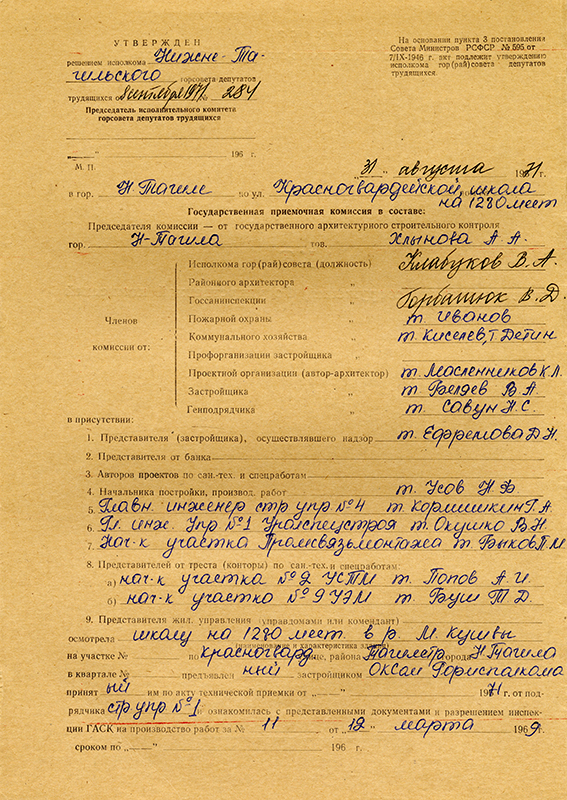 УТВЕРЖДЕН
решением исполкома Нижне-Та-
гильского горсовета депутатов
трудящихся от 8 сентября 1971 № 284
Председатель исполнительного комитета
горсовета депутатов трудящихся
На основании пункта 3 постановления
Совета Министров РСФСР № 595 от
7/IX-1946 г. акт подлежит утверждению
исполкома гор(рай)совета депутатов
трудящихся.
„ “ 196 г.
М. П.
„31“ августа 1971
в гор. Н Тагиле по ул. Красногвардейской школа
на 1280 мест
Государственная приемочная комиссия в составе:
Председателя комиссии — от государственного архитектурного строительного контроля
гор. Н-Тагила тов. Хлынова А А.
Членов
комиссии от:
Исполкома гор(рай)совета (должность) Клабуков В. А.
Районного архитектора „
Госсанинспекции „ Горбашюк В. Д.
Пожарной охраны „ т Иванов
Коммунального хозяйства „ т. Киселев, т Детин
Профорганизации застройщика „
Проектной организации (автор-архитектор) т. Масленников К Л.
Застройщика „ т Беляев В А.
Генподрядчика „ т. Савун Н С.
в присутствии:
1. Представителя (застройщика), осуществлявшего надзор т. Ефремова Д Н.
2. Представителя от банка
3. Авторов проектов по сан.-тех. и спецработам
4. Начальника постройки, производ. работ т. Усов Н Ф
5. Главн. инженер стр упр № 4 т Кормишкин Г. А.
6. Гл. инж. Упр № 1 Уралспецстроя т. Окушко В Н
7. Нач-к участка Промсвязьмонтажа т. Быков П. М.
8. Представителей от треста (конторы) по сан.-тех. и спецработам:
а) нач-к участка № 2 УСТМ т. Попов А. И
б) нач-к участка № 9 УЭМ т. Буш Т Д.
9. Представителя жил. управления (управдомами или комендант)
осмотрела школу на 1280 мест. в р. М. Кушвы
на участке № по Красногвард , района Тагилстр города Н Тагила
в квартале № предъявлен ный застройщиком ОКСом Горисполкома
принят ый им по акту технической приемки от „ “ 1971 г. от под-
рядчика стр упр № 1 и ознакомилась с представленными документами и разрешением инспек-
ции ГАСК на производство работ за № 11 от „12“ марта 1969 г.
сроком по „ “ 196 г.